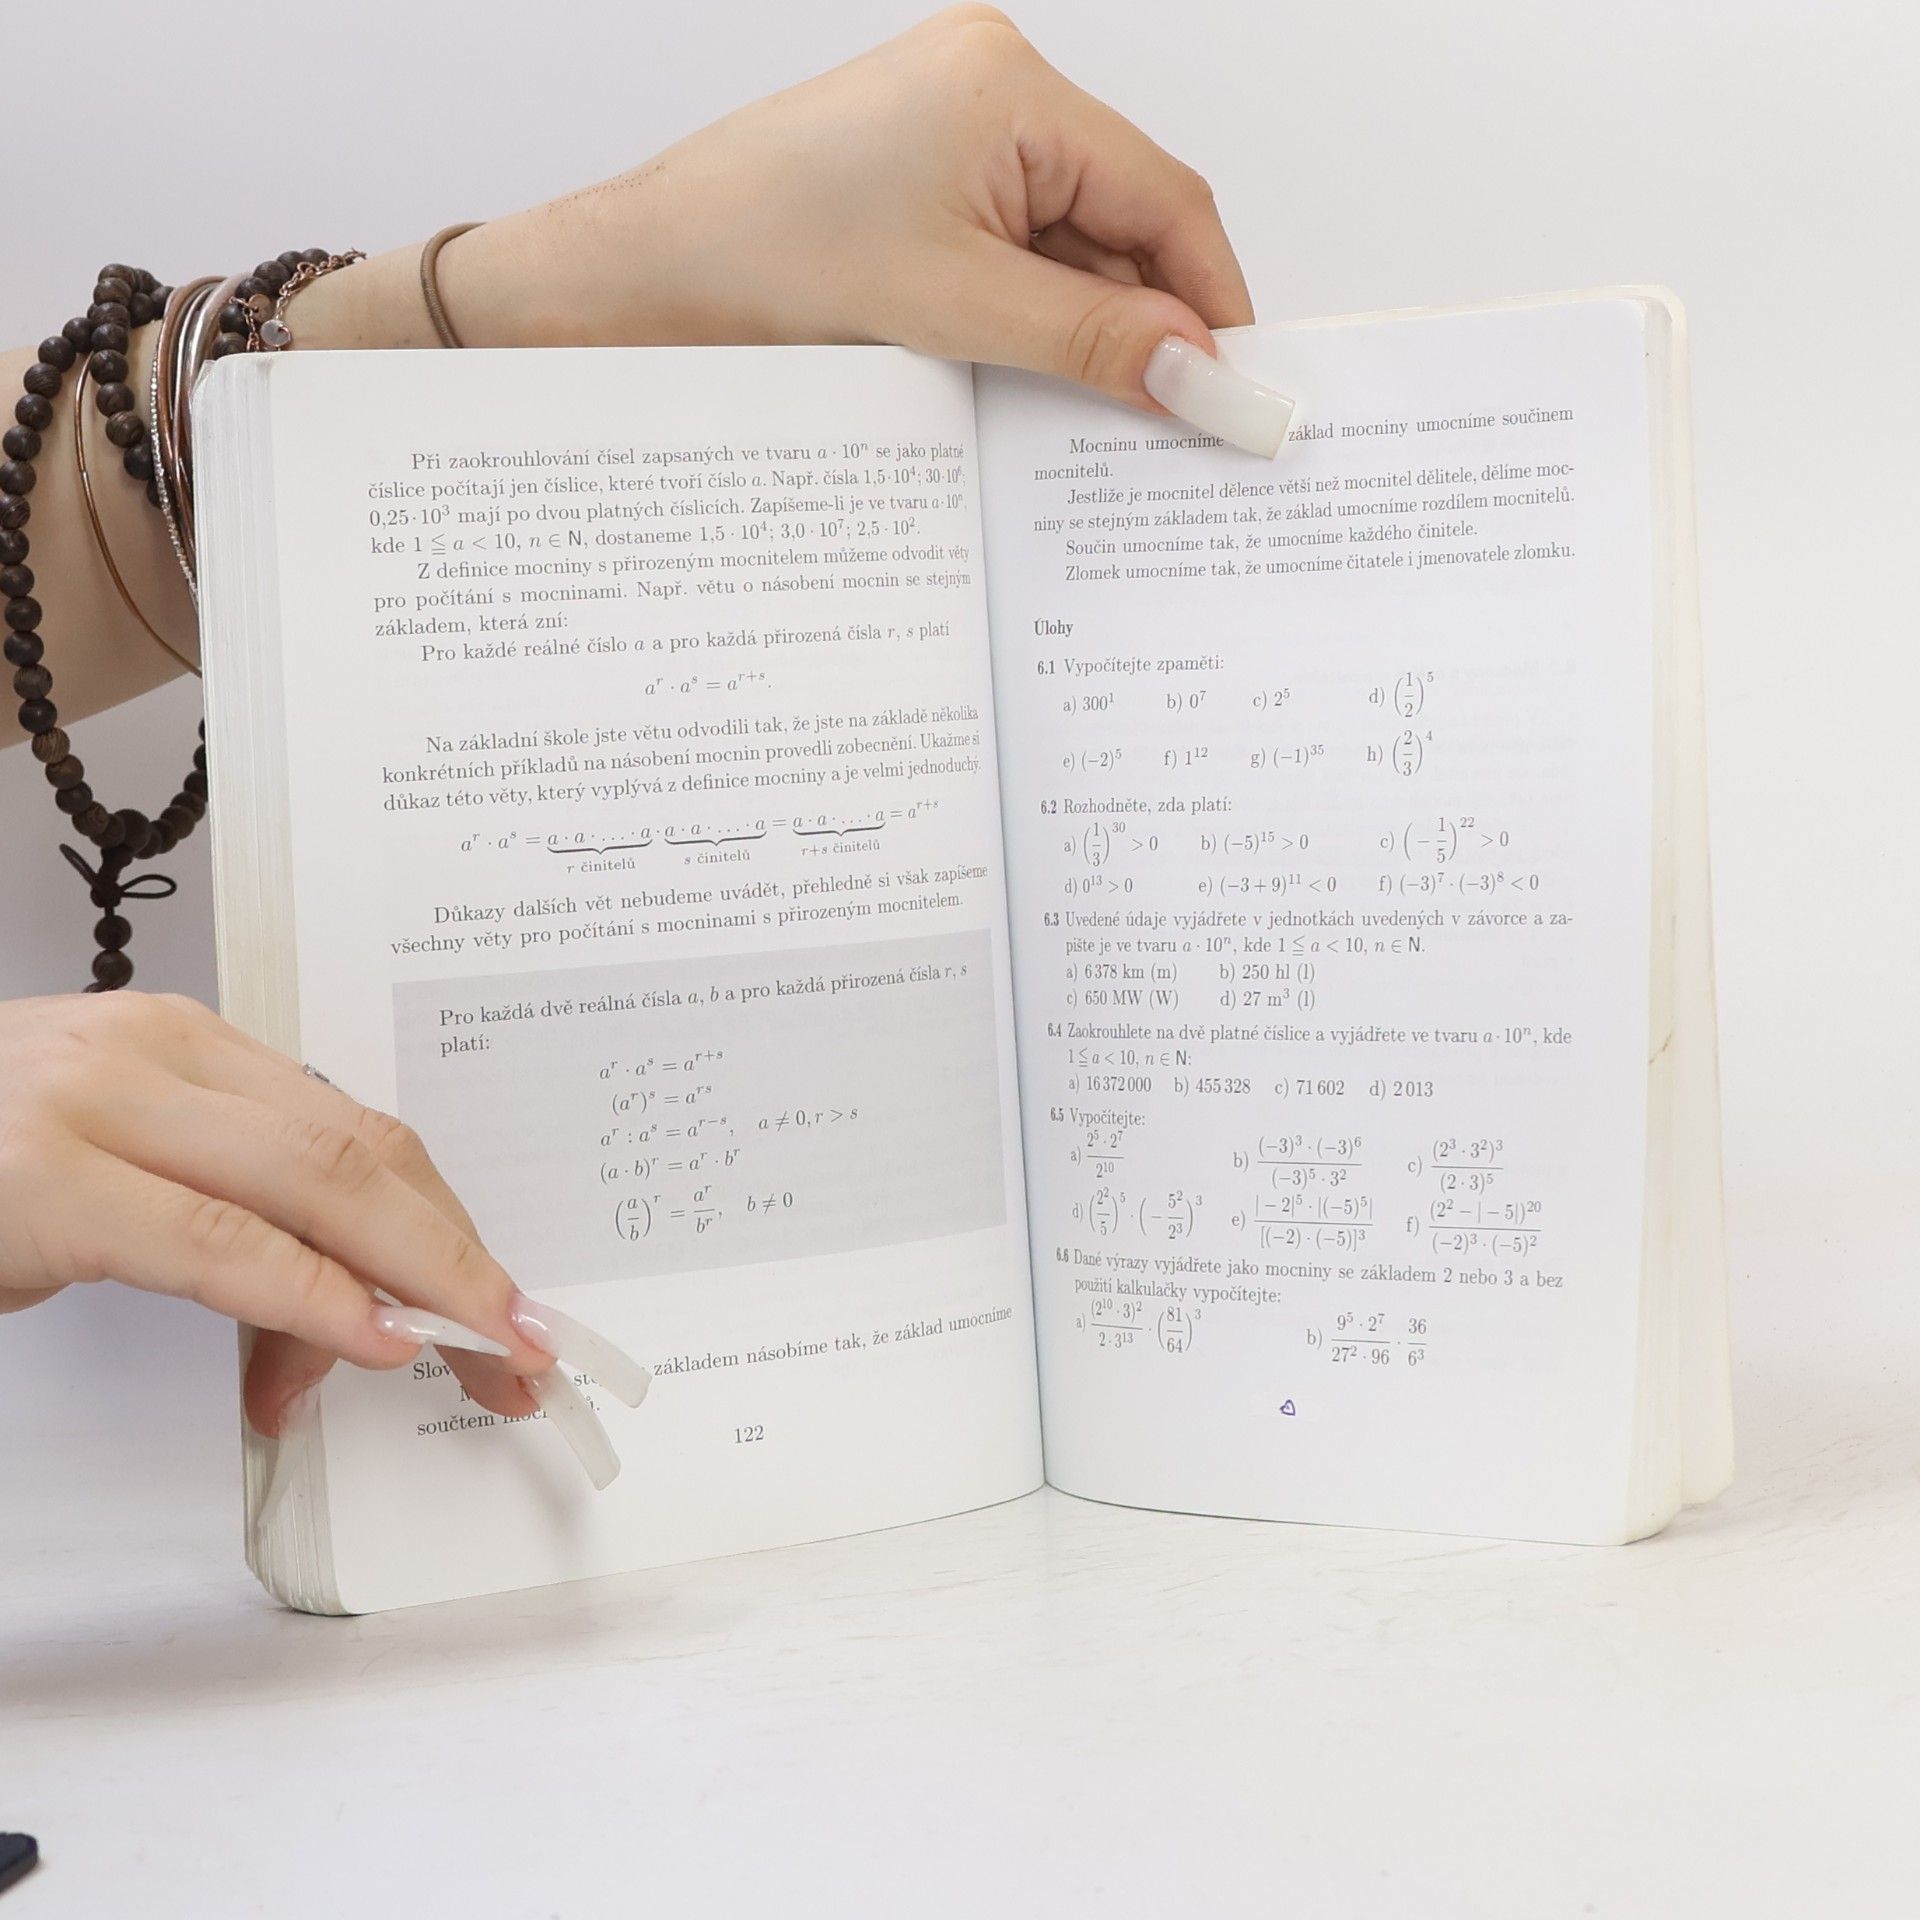 Při zaokrouhlování čísel zapsaných ve tvaru a · 10ⁿ se jako platné
číslice počítají jen číslice, které tvoří číslo a. Např. čísla 1,5·10⁴; 30·10⁶;
0,25·10³ mají po dvou platných číslicích. Zapíšeme-li je ve tvaru a·10ⁿ,
kde 1 ≦ a < 10, n ∈ N, dostaneme 1,5 · 10⁴; 3,0 · 10⁷; 2,5 · 10².
Z definice mocniny s přirozeným mocnitelem můžeme odvodit věty
pro počítání s mocninami. Např. větu o násobení mocnin se stejným
základem, která zní:
Pro každé reálné číslo a a pro každá přirozená čísla r, s platí
aʳ · aˢ = aʳ⁺ˢ.
Na základní škole jste větu odvodili tak, že jste na základě několika
konkrétních příkladů na násobení mocnin provedli zobecnění. Ukažme si
důkaz této věty, který vyplývá z definice mocniny a je velmi jednoduchý.
aʳ · aˢ = a · a · . . . . · a · a · a · . . . . · a = a · a · . . . . · a = aʳ⁺ˢ
r činitelů s činitelů r+s činitelů
Důkazy dalších vět nebudeme uvádět, přehledně si však zapíšeme
všechny věty pro počítání s mocninami s přirozeným mocnitelem.
Pro každá dvě reálná čísla a, b a pro každá přirozená čísla r, s
platí:
aʳ · aˢ = aʳ⁺ˢ
(aʳ)ˢ = aʳˢ
aʳ : aˢ = aʳ⁻ˢ, a ≠ 0, r > s
(a · b)ʳ = aʳ · bʳ
(a/b)ʳ = aʳ/bʳ, b ≠ 0
základem násobíme tak, že základ umocníme
součtem
122
Mocninu umocníme základ mocniny umocníme součinem
mocnitelů.
Jestliže je mocnitel dělence větší než mocnitel dělitele, dělíme moc-
niny se stejným základem tak, že základ umocníme rozdílem mocnitelů.
Součin umocníme tak, že umocníme každého činitele.
Zlomek umocníme tak, že umocníme čitatele i jmenovatele zlomku.
Úlohy
6.1 Vypočítejte zpaměti:
a) 300¹ b) 0⁷ c) 2⁵ d) (1/2)⁵
e) (−2)⁵ f) 1¹² g) (−1)³⁵ h) (2/3)⁴
6.2 Rozhodněte, zda platí:
a) (1/3)³⁰ > 0 b) (−5)¹⁵ > 0 c) (−1/5)²² > 0
d) 0¹³ > 0 e) (−3 + 9)¹¹ < 0 f) (−3)⁷ · (−3)⁸ < 0
6.3 Uvedené údaje vyjádřete v jednotkách uvedených v závorce a za-
pište je ve tvaru a · 10ⁿ, kde 1 ≦ a < 10, n ∈ N.
a) 6 378 km (m) b) 250 hl (l)
c) 650 MW (W) d) 27 m³ (l)
6.4 Zaokrouhlete na dvě platné číslice a vyjádřete ve tvaru a · 10ⁿ, kde
1 ≦ a < 10, n ∈ N:
a) 16 372 000 b) 455 328 c) 71 602 d) 2 013
6.5 Vypočítejte:
a) (2⁵ · 2⁷)/2¹⁰ b) ((−3)³ · (−3)⁶)/((−3)⁵ · 3²) c) (2³ · 3²)³/(2 · 3)⁵
d) (2²/5)⁵ · (−5²/2³)³ e) (|−2|⁵ · |(−5)⁵|)/[(−2) · (−5)]³ f) (2² − |−5|)²⁰/((−2)³ · (−5)²)
6.6 Dané výrazy vyjádřete jako mocniny se základem 2 nebo 3 a bez
použití kalkulačky vypočítejte:
a) (2¹⁰ · 3)²/(2 · 3¹³) · (81/64)³ b) (9⁵ · 2⁷)/(27² · 96) · 36/6³